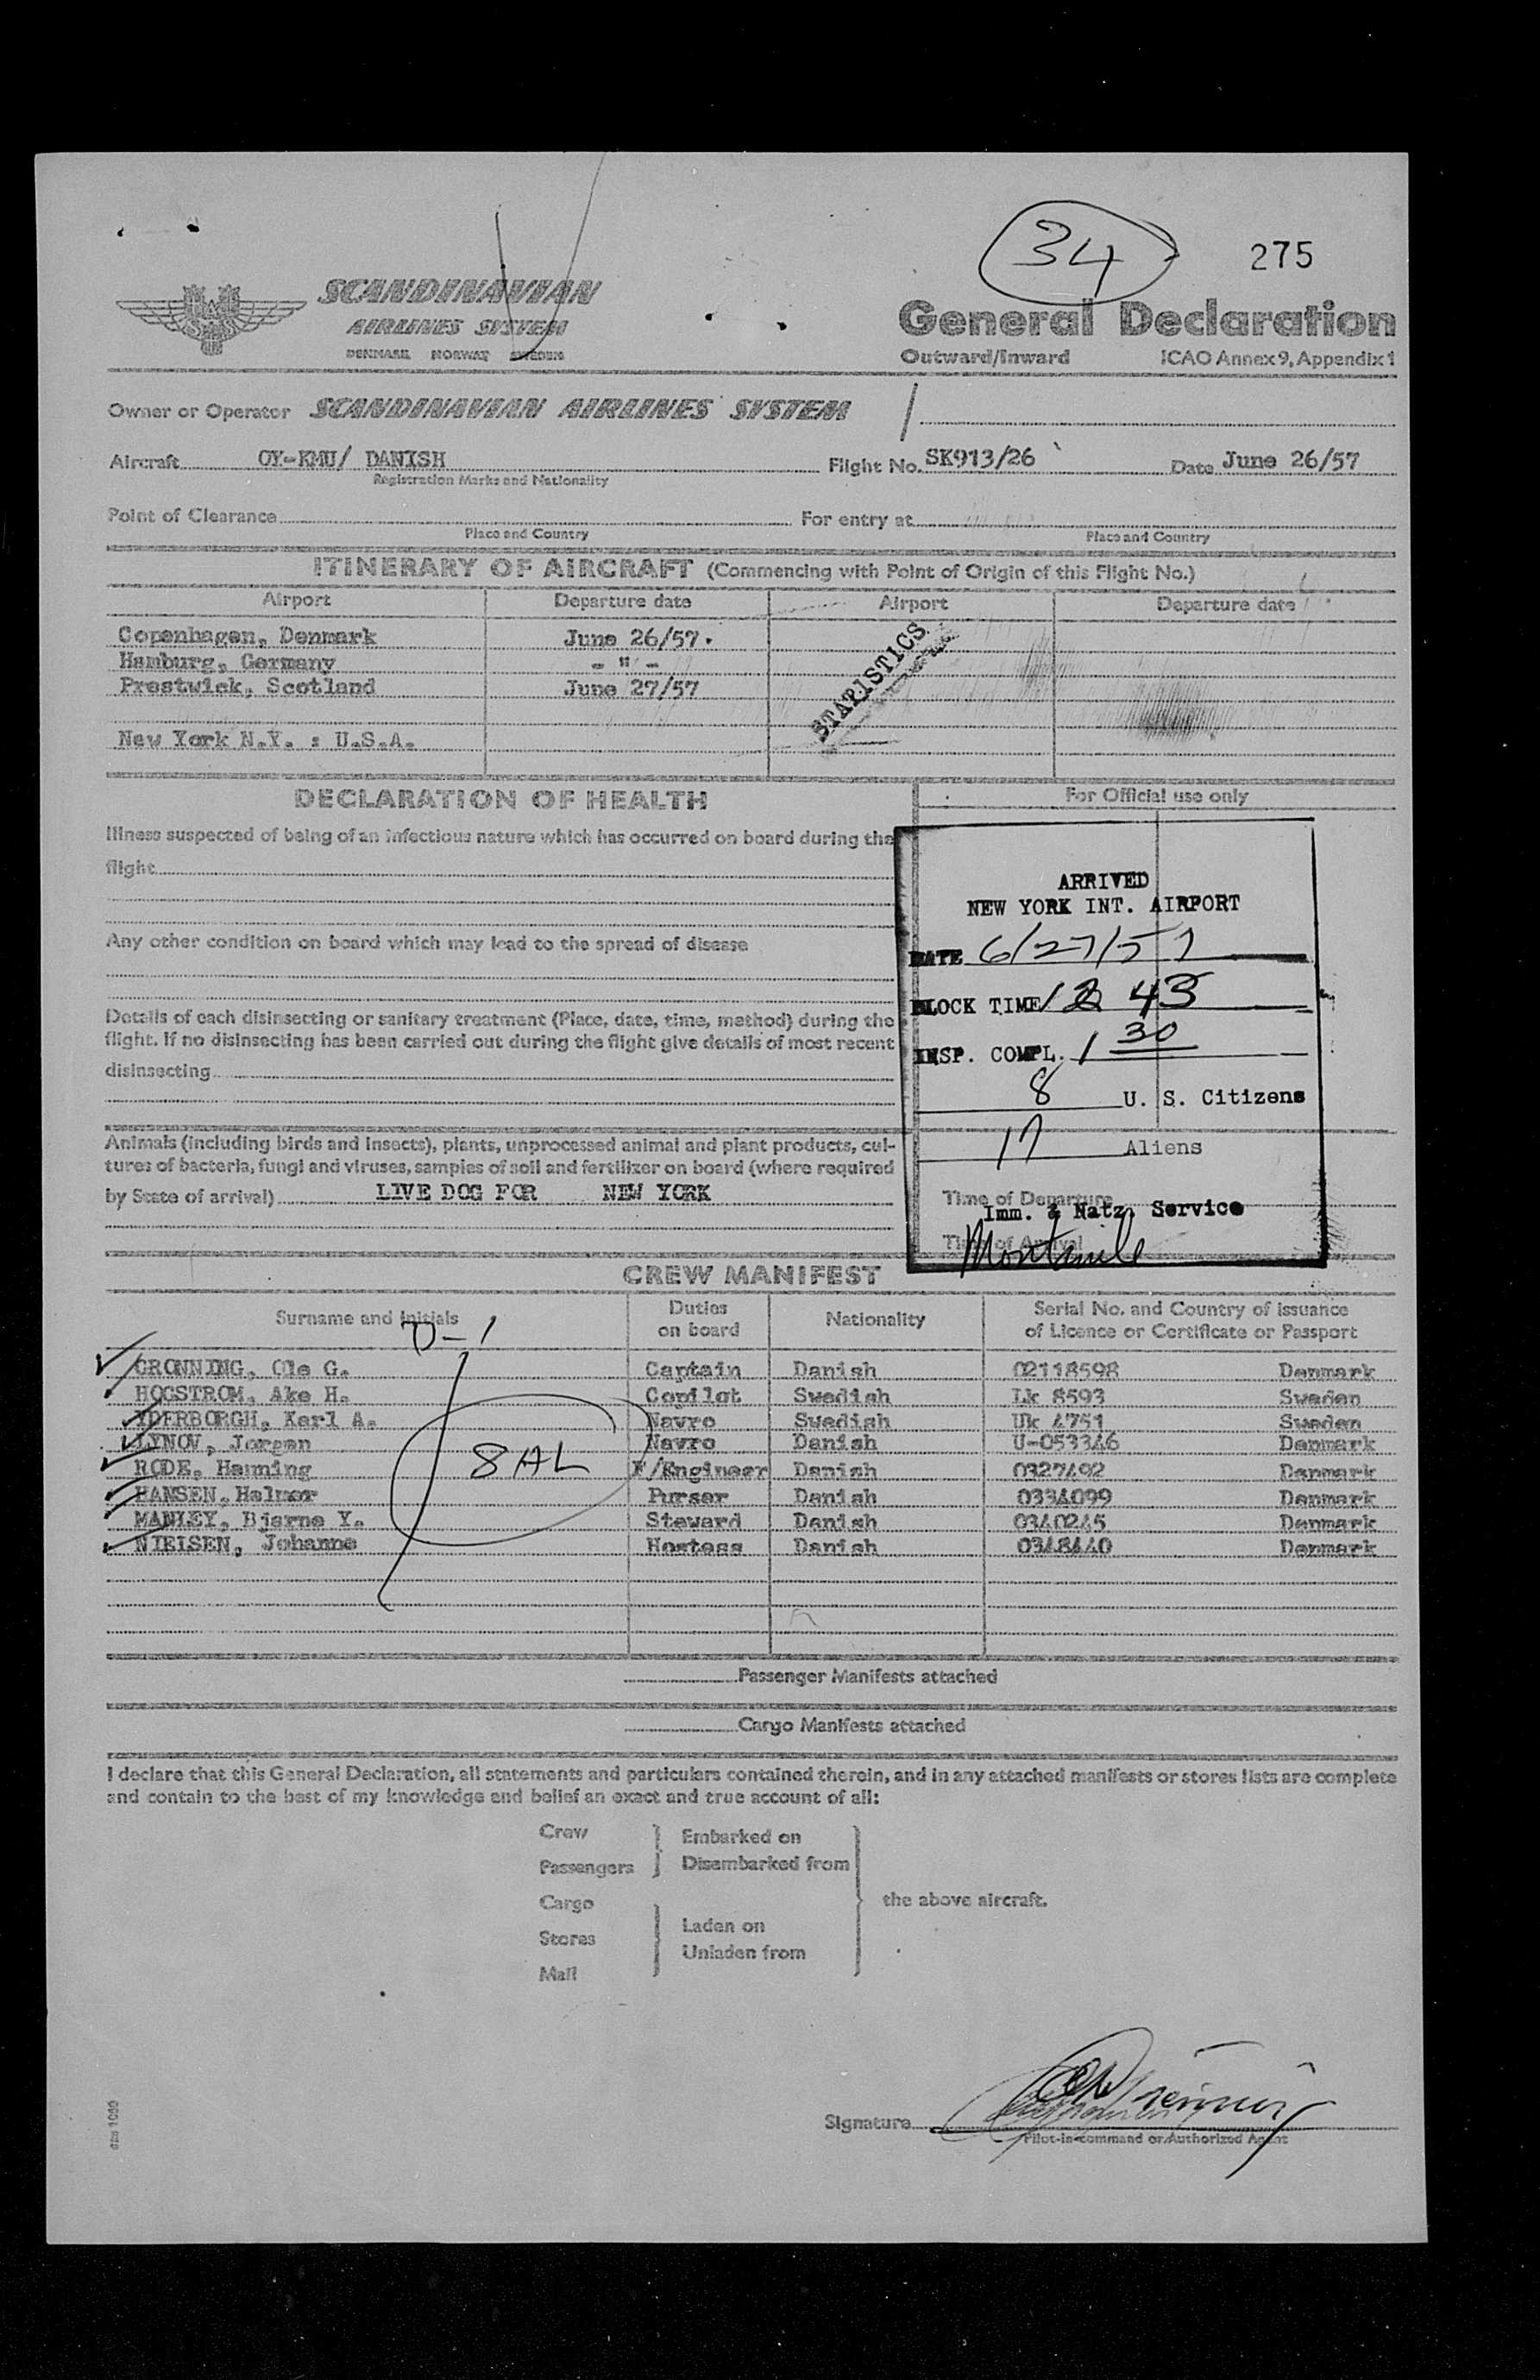 34
275
SCANDINAVIAN
AIRLINES SYSTEM
DENMARK NORWAY SWEDEN
General Declaration
Outward/Inward ICAO Annex 9, Appendix 1
Owner or Operator SCANDINAVIAN AIRLINES SYSTEM
Aircraft OY-KMU/ DANISH Flight No. SK913/26 Date June 26/57
Registration Marks and Nationality
Point of Clearance For entry at
Place and Country Place and Country
ITINERARY OF AIRCRAFT (Commencing with Point of Origin of this Flight No.)
Airport Departure date Airport Departure date
Copenhagen, Denmark June 26/57.
Hamburg, Germany - " -
Prestwick, Scotland June 27/57
New York N.Y. : U.S.A.
STATISTICS
DECLARATION OF HEALTH
Illness suspected of being of an infectious nature which has occurred on board during the
flight
Any other condition on board which may lead to the spread of disease
Details of each disinsecting or sanitary treatment (Place, date, time, method) during the
flight. If no disinsecting has been carried out during the flight give details of most recent
disinsecting
Animals (including birds and insects), plants, unprocessed animal and plant products, cul-
tures of bacteria, fungi and viruses, samples of soil and fertilizer on board (where required
by State of arrival) LIVE DOG FOR NEW YORK
For Official use only
ARRIVED
NEW YORK INT. AIRPORT
DATE 6/27/57
BLOCK TIME 12 43
INSP. COMPL. 1 30
8 U. S. Citizens
17 Aliens
Time of Departure
Imm. & Natz. Service
Time of Arrival
CREW MANIFEST
Surname and Initials Duties on board Nationality Serial No. and Country of issuance of Licence or Certificate or Passport
D-1
GRONNING, Ole G. Captain Danish 02118598 Denmark
HOGSTROM, Ake H. Copilot Swedish Lk 8593 Sweden
YDERBORGH, Karl A. Navro Swedish Uk 4751 Sweden
LYNOV, Jorgen Navro Danish U-053346 Denmark
RODE, Henning F/Engineer Danish 0327492 Denmark
HANSEN, Helmer Purser Danish 0334099 Denmark
MANLEY, Bjarne Y. Steward Danish 0340245 Denmark
NIELSEN, Johanne Hostess Danish 0348440 Denmark
8 AL
Passenger Manifests attached
Cargo Manifests attached
I declare that this General Declaration, all statements and particulars contained therein, and in any attached manifests or stores lists are complete
and contain to the best of my knowledge and belief an exact and true account of all:
Crew
Passengers
Embarked on
Disembarked from
Cargo
Stores
Mail
Laden on
Unladen from
the above aircraft.
Signature
Pilot-in-command or Authorized Agent